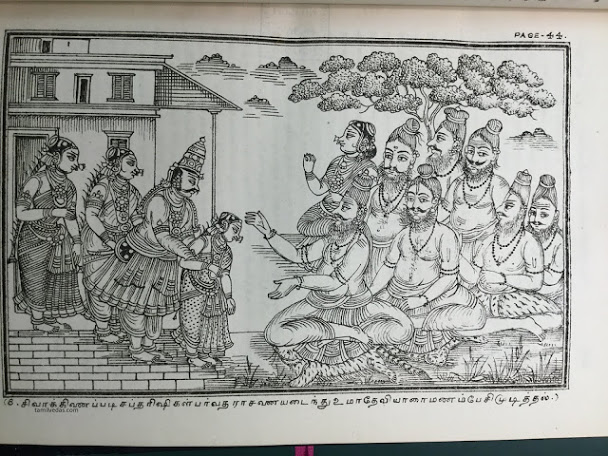 PAGE-44.
(6. சிவாக்கிணைப்படி சப்தரிஷிகள் பர்வதராசனையடைந்து உமாதேவியாரை மணம் பேசி முடித்தல்.)
tamilvedas.com